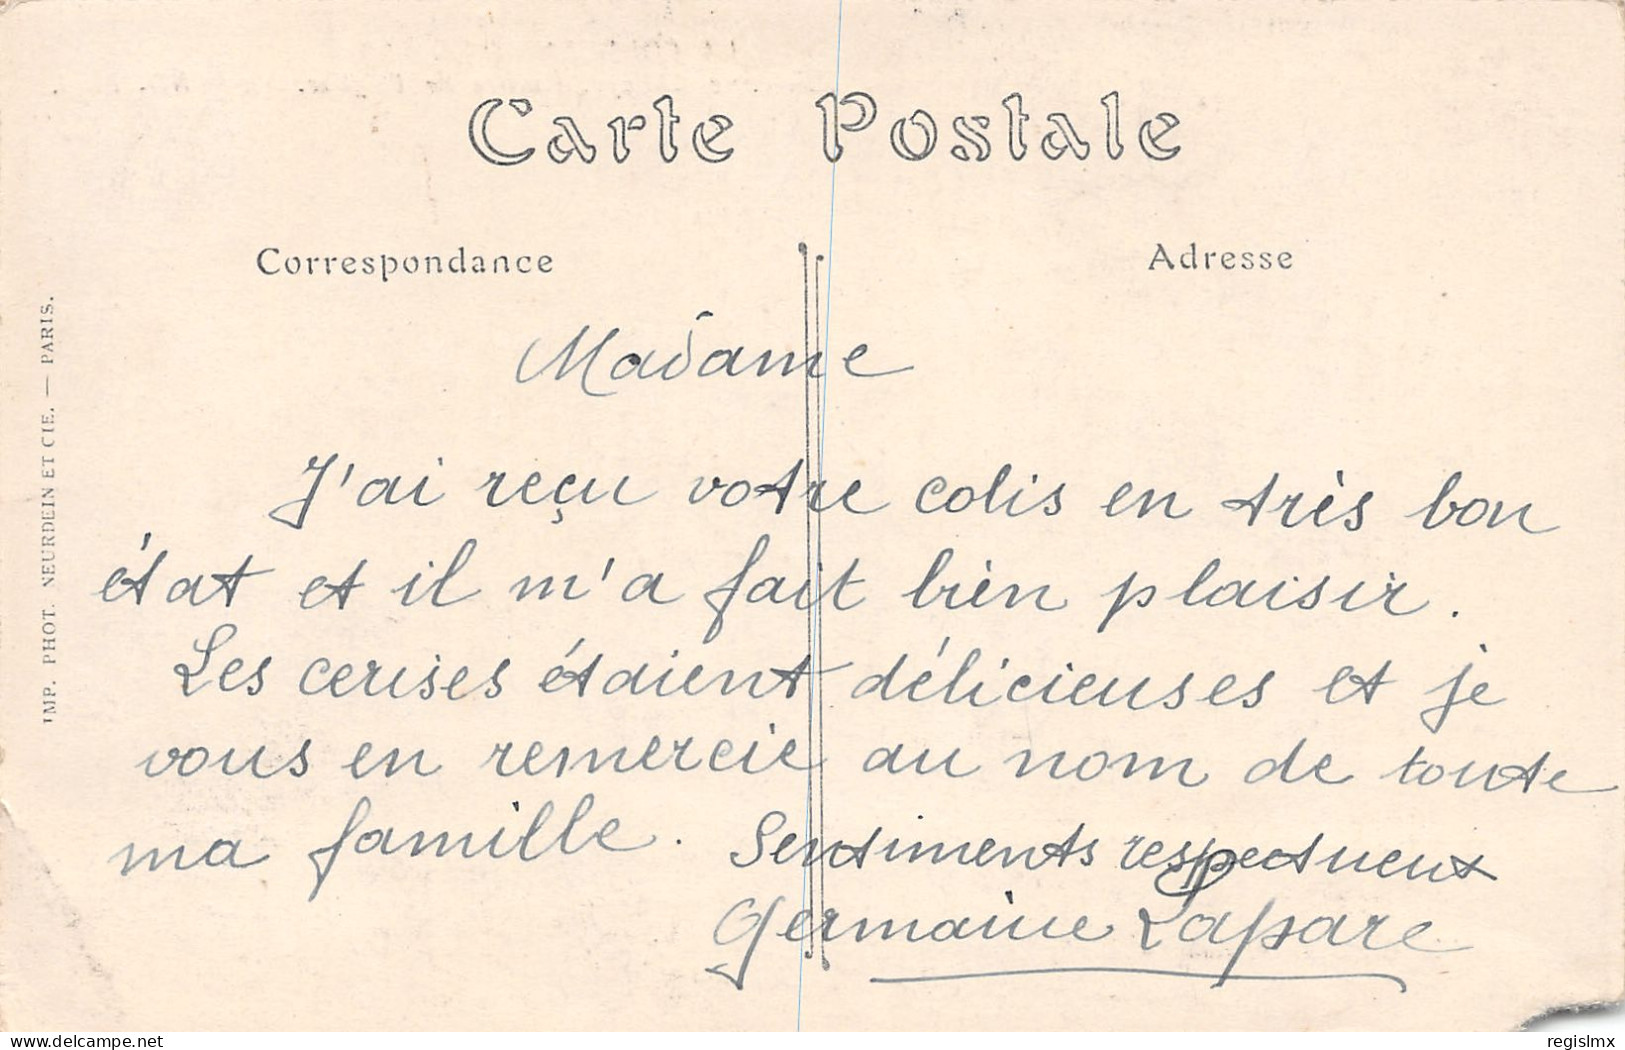 Carte Postale
Correspondance
Adresse
IMP. PHOT. NEURDEIN ET CIE. — PARIS.
Madame
J'ai reçu votre colis en très bon
état et il m'a fait bien plaisir.
Les cerises étaient délicieuses et je
vous en remercie au nom de toute
ma famille. Sentiments respectueux
Germaine Lapare
delcampe.net
regislmx